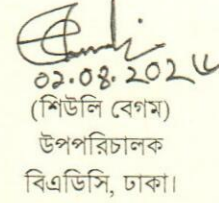 02.08.202
(শিউলি বেগম)
উপপরিচালক
বিএডিসি, ঢাকা।